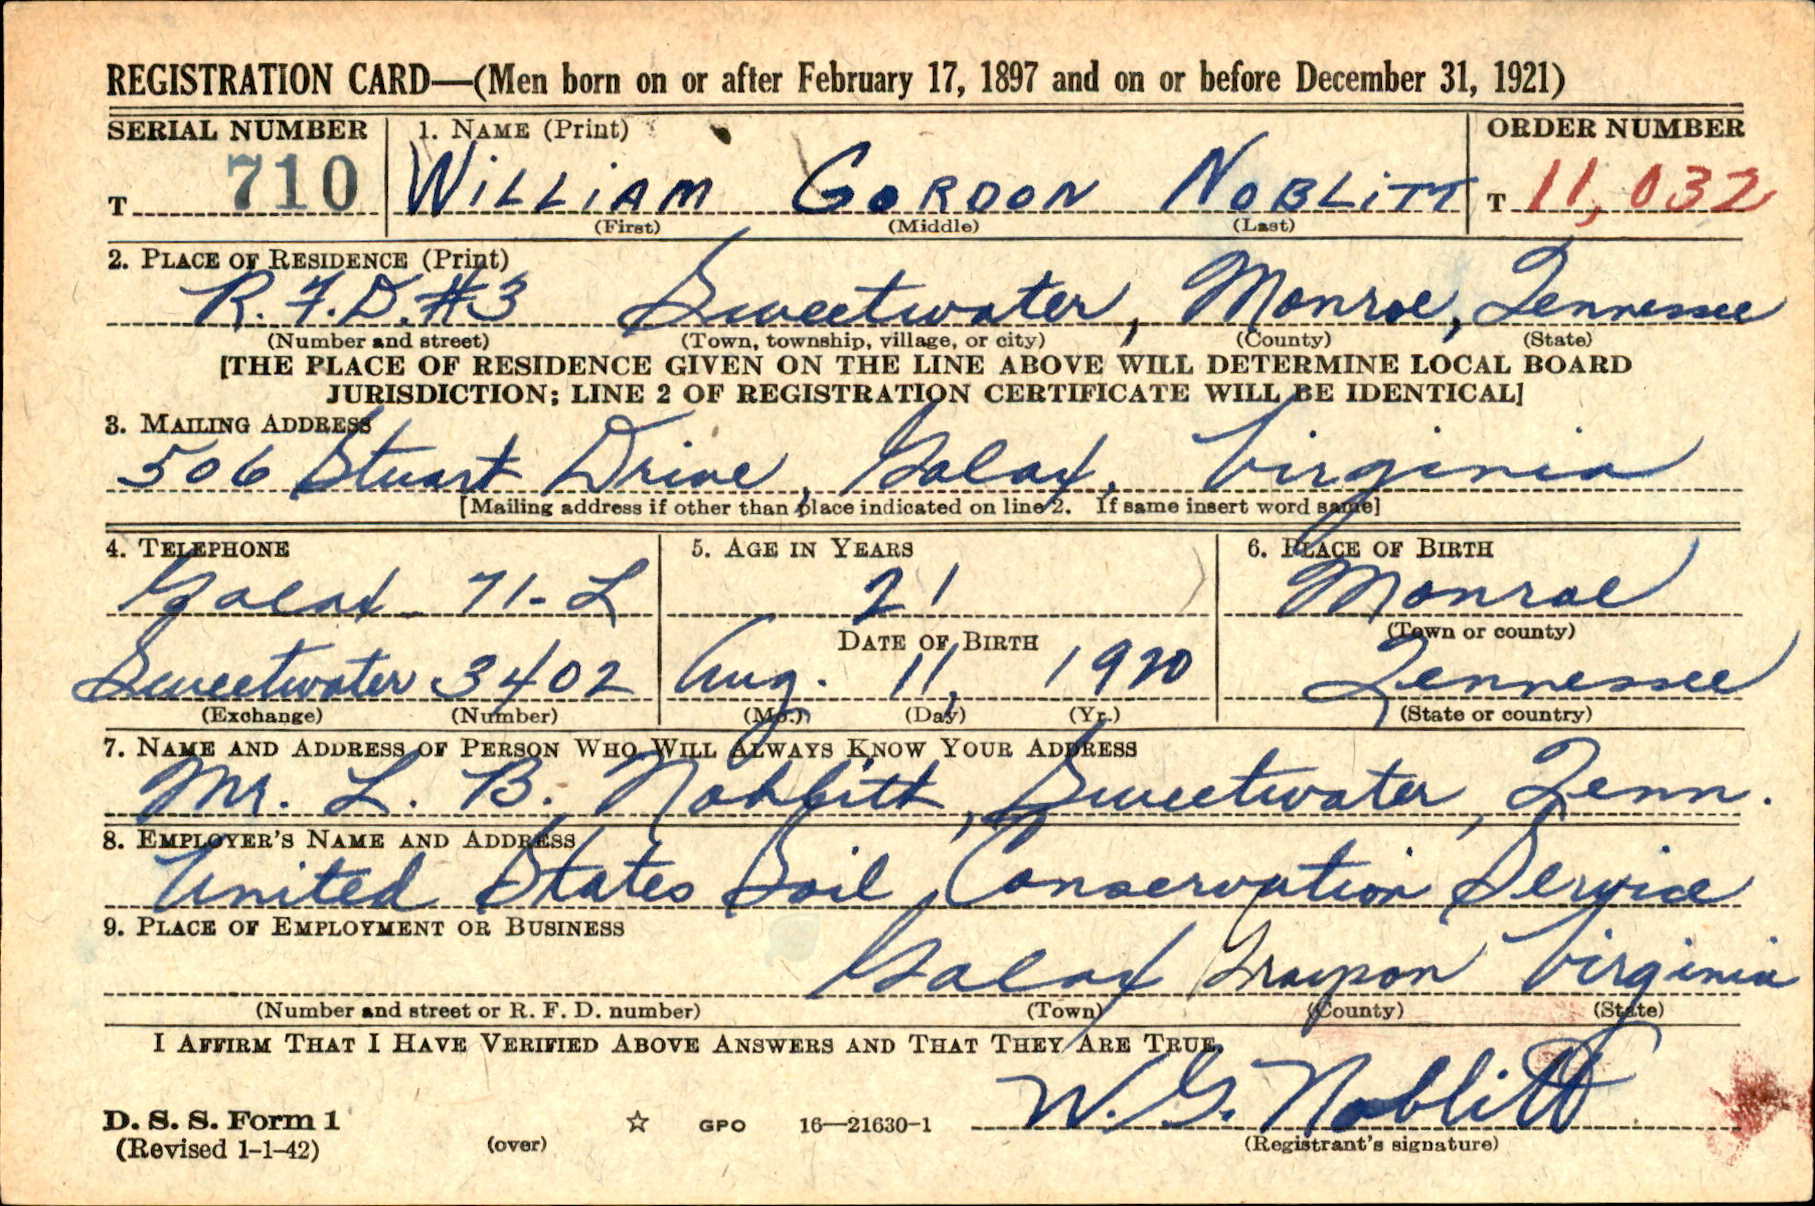 REGISTRATION CARD—(Men born on or after February 17, 1897 and on or before December 31, 1921)
SERIAL NUMBER
1. NAME (Print)
ORDER NUMBER
T 710
WILLIAM GORDON NOBLITT
T 11,032
(First) (Middle) (Last)
2. PLACE OF RESIDENCE (Print)
R.F.D.#3 Sweetwater, Monroe, Tennessee
(Number and street) (Town, township, village, or city) (County) (State)
[THE PLACE OF RESIDENCE GIVEN ON THE LINE ABOVE WILL DETERMINE LOCAL BOARD
JURISDICTION; LINE 2 OF REGISTRATION CERTIFICATE WILL BE IDENTICAL]
3. MAILING ADDRESS
506 Stuart Drive, Galax, Virginia
[Mailing address if other than place indicated on line 2. If same insert word same]
4. TELEPHONE
Galax - 71-L
Sweetwater 3402
(Exchange) (Number)
5. AGE IN YEARS
21
DATE OF BIRTH
Aug. 11, 1920
(Mo.) (Day) (Yr.)
6. PLACE OF BIRTH
Monroe
(Town or county)
Tennessee
(State or country)
7. NAME AND ADDRESS OF PERSON WHO WILL ALWAYS KNOW YOUR ADDRESS
Mr. L. B. Noblitt, Sweetwater, Tenn.
8. EMPLOYER'S NAME AND ADDRESS
United States Soil Conservation Service
9. PLACE OF EMPLOYMENT OR BUSINESS
Galax Grayson Virginia
(Number and street or R. F. D. number) (Town) (County) (State)
I AFFIRM THAT I HAVE VERIFIED ABOVE ANSWERS AND THAT THEY ARE TRUE.
W. G. Noblitt
D. S. S. Form 1
(Revised 1-1-42) (over) ☆ GPO 16—21630-1 (Registrant's signature)